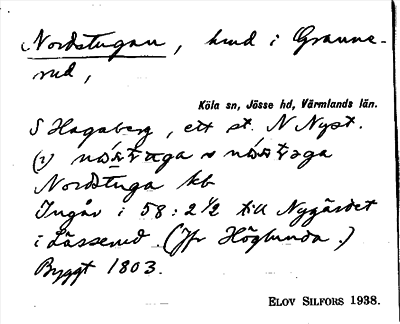 Nordstugan, hmd i Granne-
rud,
Köla sn, Jösse hd, Värmlands län.
S Hagaberg, ett st. N Nyst.
(2)
Nordstuga kb
Ingår i 58:2½ till Nygärdet
i Lässerud. (Jfr Höglunda.)
Byggt 1803.
ELOV SILFORS 1938.